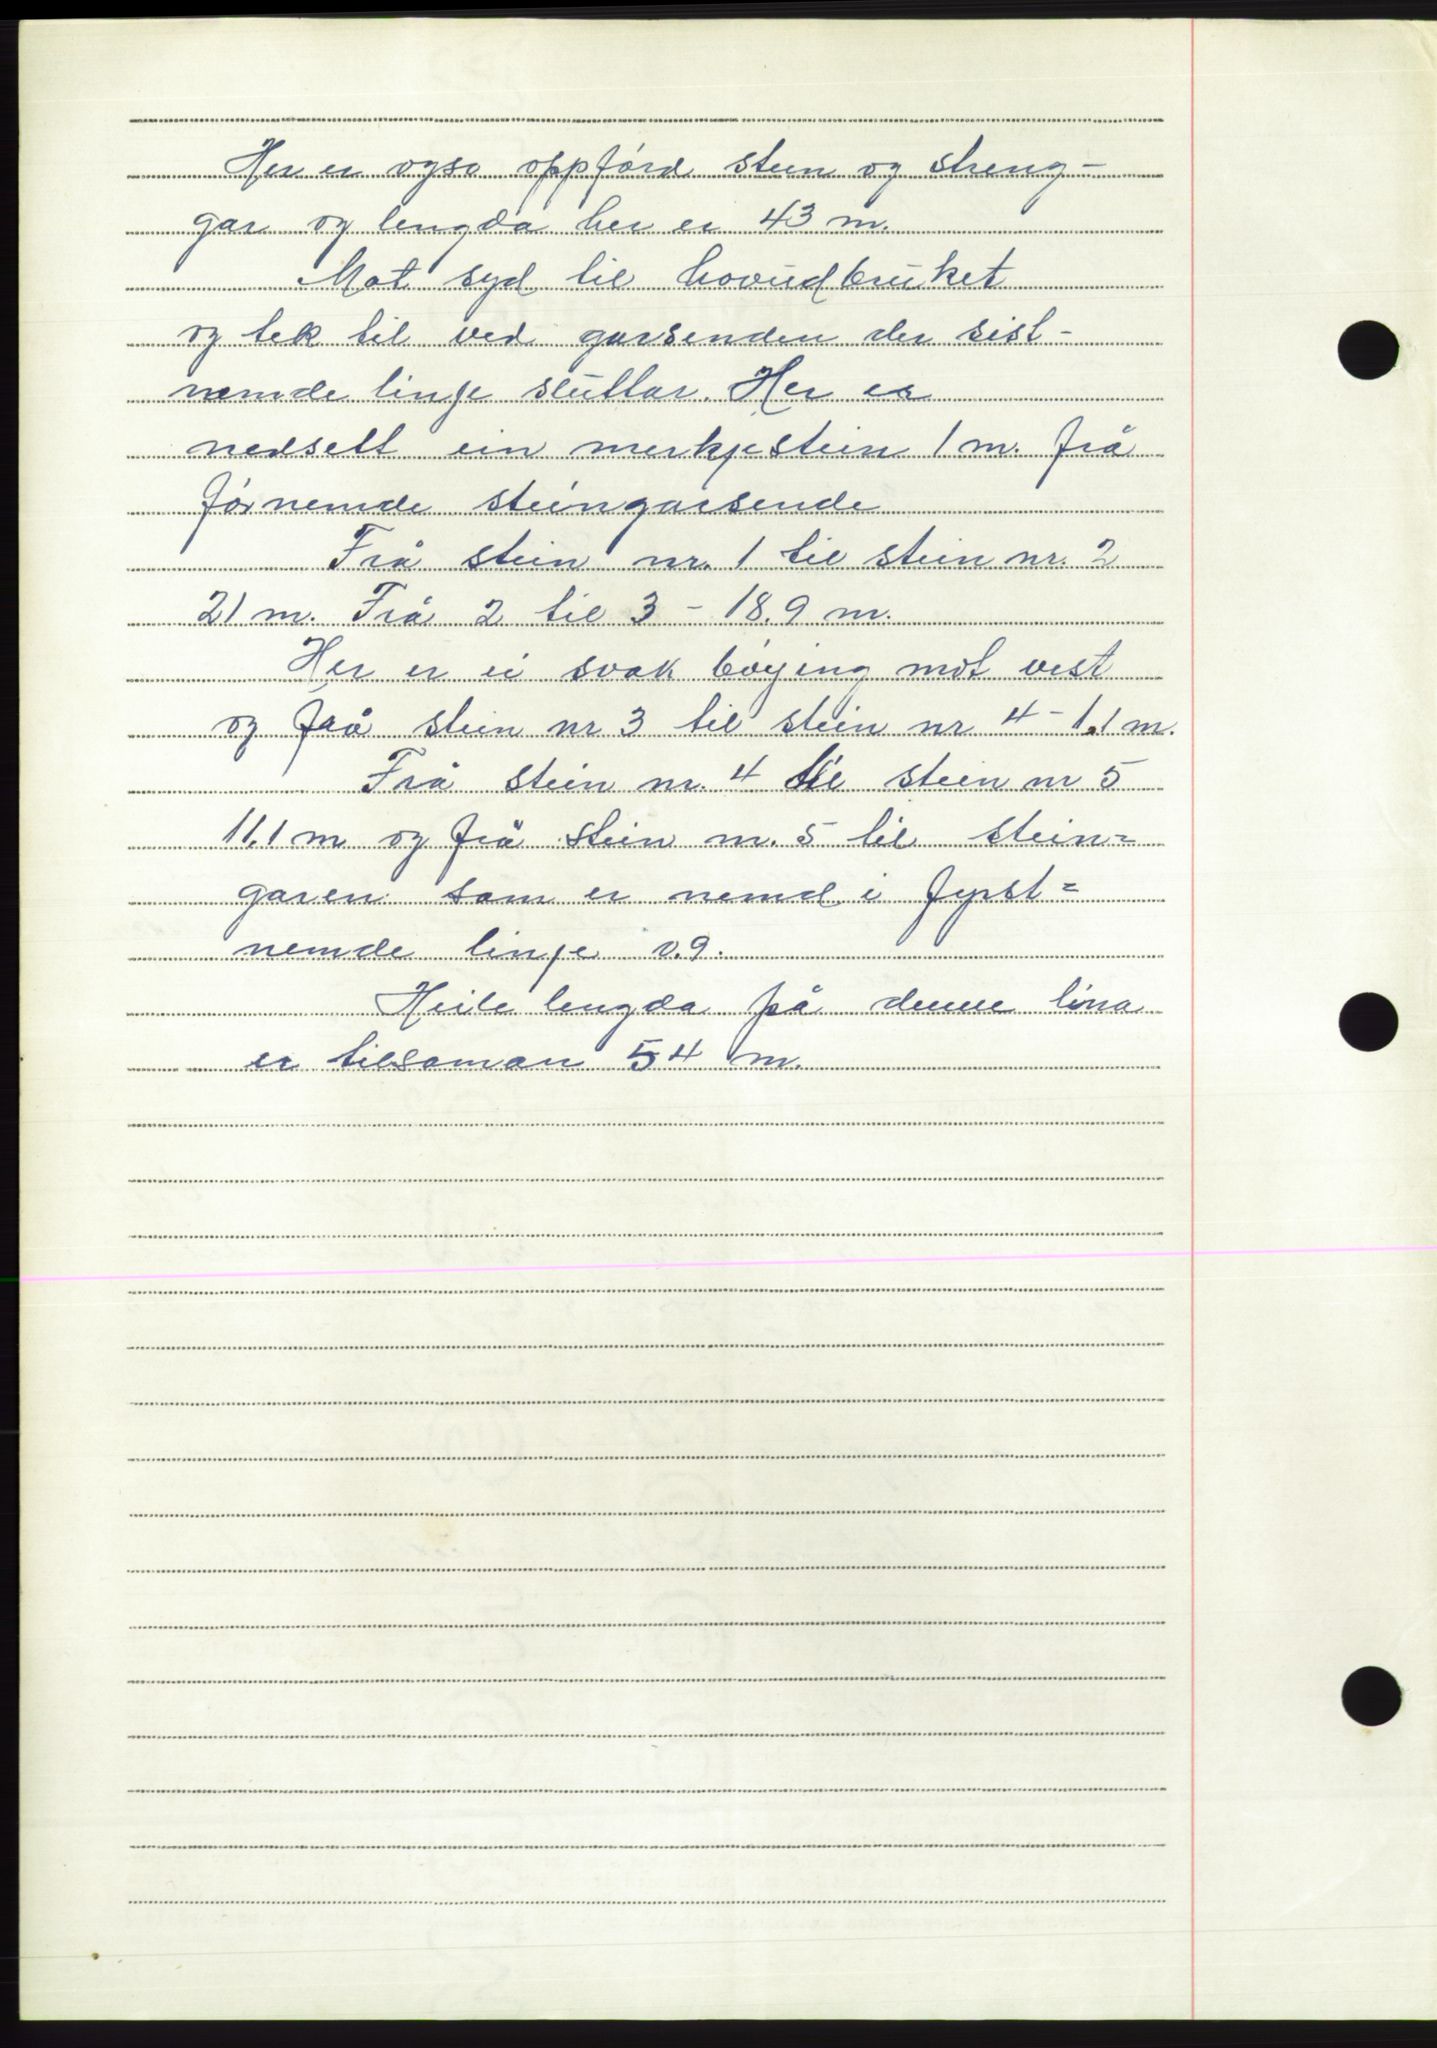 Her er ogso oppförd stein og streng-
gar og lengda her er 43 m.
Mot syd til hovudbruket
og tek til ved garsenden der sist-
nemde linje sluttar. Her er
nedsett ein merkjestein 1 m. frå
förnemde steingarsende
Frå stein nr. 1 til stein nr. 2
21 m. Frå 2 til 3 - 18.9 m.
Her er ei svak böying mot vest
og frå stein nr 3 til stein nr 4 - 1.1 m.
Frå stein nr. 4 til stein nr 5
11.1 m og frå stein nr. 5 til stein=
garen som er nemd i fyrst=
nemde linje 0.9.
Heile lengda på denne lina
er tilsaman 54 m.